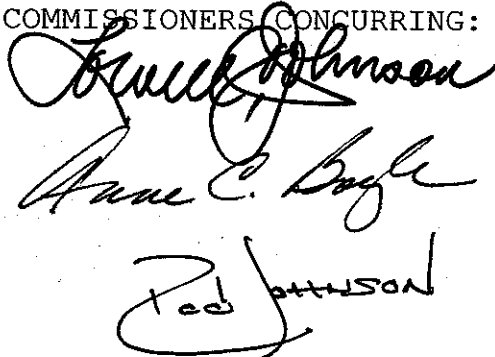 COMMISSIONERS CONCURRING:
Lowell Johnson
Anne C. Boyle
Rod Johnson